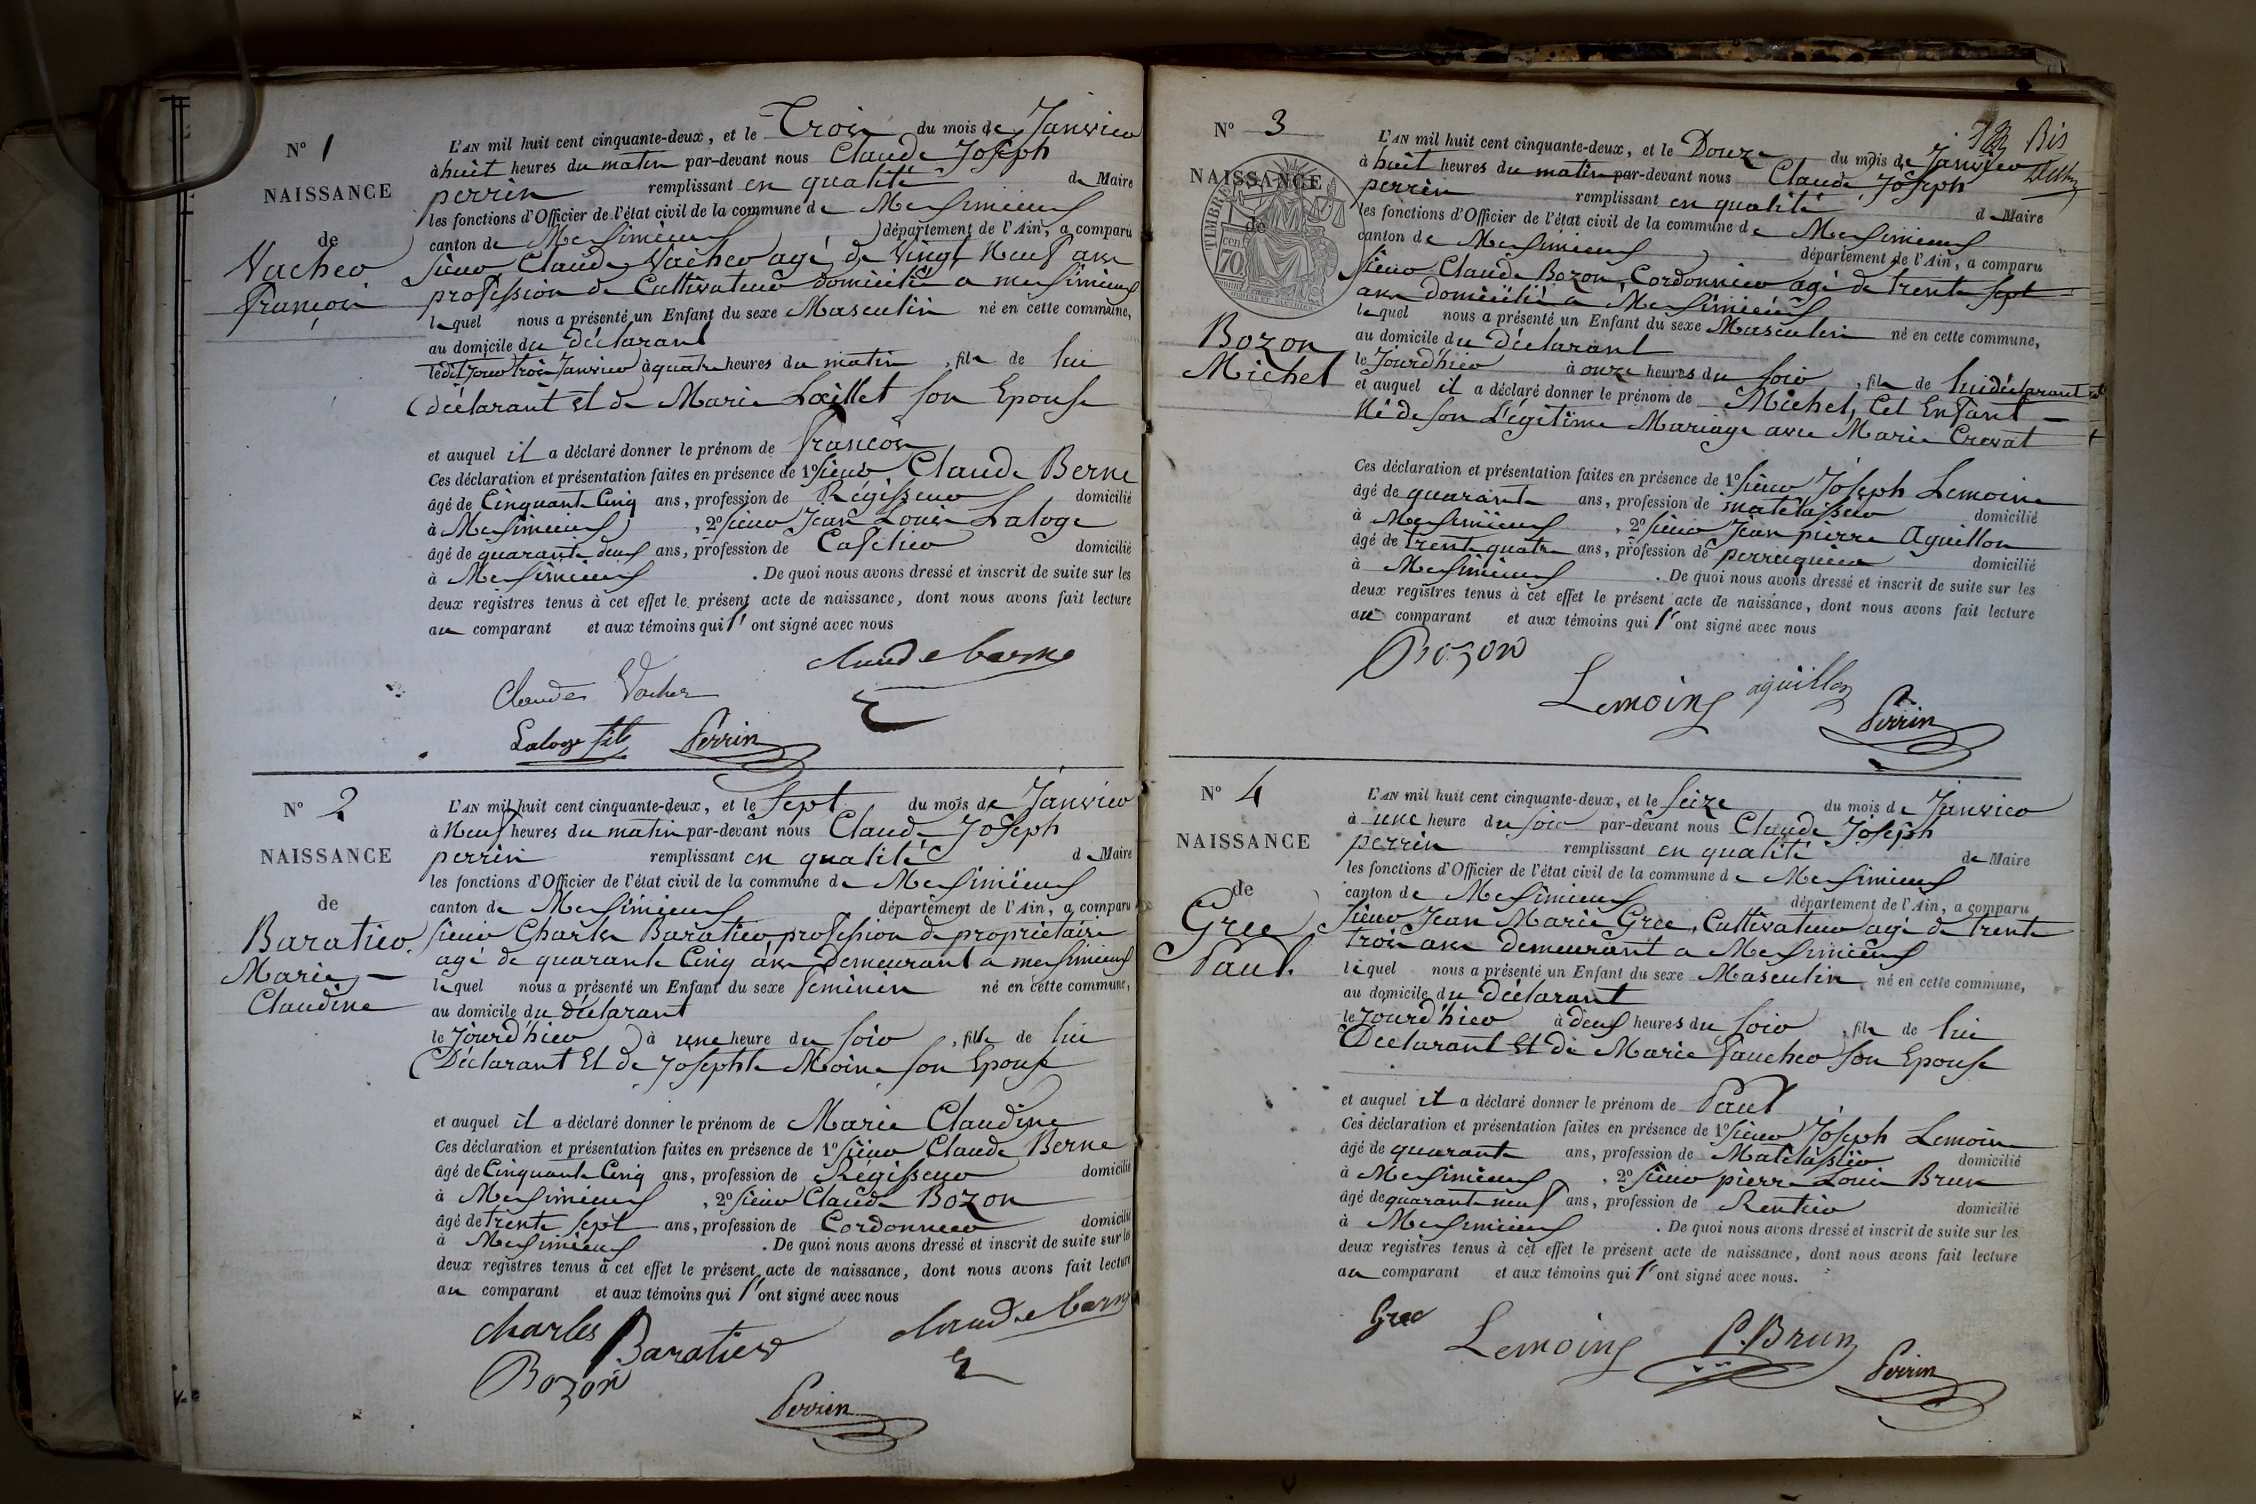 N° 1
NAISSANCE
de
Vacher
françois
L'AN mil huit cent cinquante-deux, et le Trois du mois de Janvier
à huit heures du matin par-devant nous Claude Joseph
perrin remplissant en qualité de Maire
les fonctions d'Officier de l'état civil de la commune de Messimieux
canton de Messimieux département de l'Ain, a comparu
sieur Claude Vacher agé de vingt neuf ans
profession de Cultivateur domicilié a messimieux
lequel nous a présenté un Enfant du sexe Masculin né en cette commune,
au domicile du déclarant
ledit Jour trois Janvier à quatre heures du matin, fils de lui
déclarant et de Marie Loillet son Epouse
et auquel il a déclaré donner le prénom de françois
Ces déclaration et présentation faites en présence de 1° sieur Claude Berne
âgé de Cinquante Cinq ans, profession de Régisseur domicilié
à Messimieux, 2° sieur Jean Louis Laloge
âgé de quarante deux ans, profession de Cafetier domicilié
à Messimieux. De quoi nous avons dressé et inscrit de suite sur les
deux registres tenus à cet effet le présent acte de naissance, dont nous avons fait lecture
au comparant et aux témoins qui l'ont signé avec nous
claude berne
Claude Vacher
Laloge fils Perrin
N° 2
NAISSANCE
de
Baratier
Marie
Claudine
L'AN mil huit cent cinquante-deux, et le sept du mois de Janvier
à Neuf heures du matin par-devant nous Claude Joseph
perrin remplissant en qualité de Maire
les fonctions d'Officier de l'état civil de la commune de Messimieux
canton de Messimieux département de l'Ain, a comparu
sieur Charles Baratier profession de propriétaire
agé de quarante Cinq ans Demeurant a messimieux
lequel nous a présenté un Enfant du sexe feminin né en cette commune,
au domicile du déclarant
le Jourd'hier à une heure du soir, fille de lui
Déclarant Et de Josephte Moine son Epouse
et auquel il a déclaré donner le prénom de Marie Claudine
Ces déclaration et présentation faites en présence de 1° sieur Claude Berne
âgé de Cinquante Cinq ans, profession de Régisseur domicilié
à Messimieux, 2° sieur Claude Bozon
âgé de trente sept ans, profession de Cordonnier domicilié
à Messimieux. De quoi nous avons dressé et inscrit de suite sur les
deux registres tenus à cet effet le présent acte de naissance, dont nous avons fait lecture
au comparant et aux témoins qui l'ont signé avec nous
charles Baratier claude berne
Bozon
Perrin
Bis
N° 3
NAISSANCE
de
TIMBRE
70
Bozon
Michel
L'AN mil huit cent cinquante-deux, et le Douze du mois de Janvier
à huit heures du matin par-devant nous Claude Joseph
perrin remplissant en qualité de Maire
les fonctions d'Officier de l'état civil de la commune de Messimieux
canton de Messimieux département de l'Ain, a comparu
sieur Claude Bozon Cordonnier agé de trente sept
ans domicilié a Messimieux
lequel nous a présenté un Enfant du sexe Masculin né en cette commune,
au domicile du déclarant
le Jourd'hier à onze heures du soir, fils de lui déclarant et
et auquel il a déclaré donner le prénom de Michel, Cet Enfant
Né de son Légitime Mariage avec Marie Crevat
Ces déclaration et présentation faites en présence de 1° sieur Joseph Lemoine
âgé de quarante ans, profession de matelassier domicilié
à Messimieux, 2° sieur Jean pierre Aguillon
âgé de trente quatre ans, profession de perruquier domicilié
à Messimieux. De quoi nous avons dressé et inscrit de suite sur les
deux registres tenus à cet effet le présent acte de naissance, dont nous avons fait lecture
au comparant et aux témoins qui l'ont signé avec nous
Bozon
Lemoine aguillon
Perrin
N° 4
NAISSANCE
de
Gree
Paul
L'AN mil huit cent cinquante-deux, et le seize du mois de Janvier
à une heure du soir par-devant nous Claude Joseph
perrin remplissant en qualité de Maire
les fonctions d'Officier de l'état civil de la commune de Messimieux
canton de Messimieux département de l'Ain, a comparu
sieur Jean Marie Gree, Cultivateur agé de trente
trois ans demeurant a Messimieux
lequel nous a présenté un Enfant du sexe Masculin né en cette commune,
au domicile du déclarant
le Jourd'hier à deux heures du soir, fils de lui
Déclarant Et de Marie Faucher son Epouse
et auquel il a déclaré donner le prénom de Paul
Ces déclaration et présentation faites en présence de 1° sieur Joseph Lemoine
âgé de quarante ans, profession de Matelassier domicilié
à Messimieux, 2° sieur pierre Louis Brun
âgé de quarante neuf ans, profession de Rentier domicilié
à Messimieux. De quoi nous avons dressé et inscrit de suite sur les
deux registres tenus à cet effet le présent acte de naissance, dont nous avons fait lecture
au comparant et aux témoins qui l'ont signé avec nous.
Gree
Lemoine P. Brun
Perrin